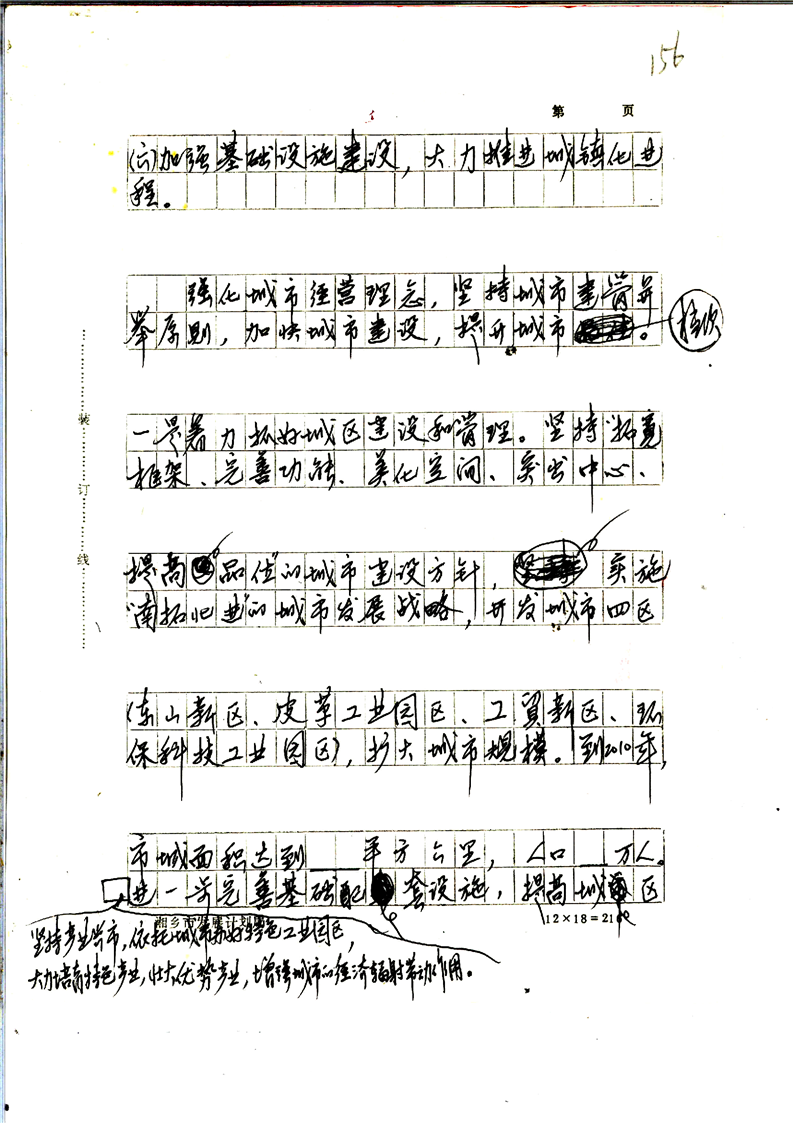 156
第 页
(六)加强基础设施建设，大力推进城镇化进
程。
强化城市经营理念，坚持城市建管并
举原则，加快城市建设，提升城市。
档次
一是着力抓好城区建设和管理。坚持“拓宽
框架、完善功能、美化空间、突出中心、
提高品位”的城市建设方针，实施
“南拓北进”的城市发展战略，开发城市四区
(东山新区、皮革工业园区、工贸新区、环
保科技工业园区)，扩大城市规模。到2010年，
市城面积达到___平方公里，人口__万人。
进一步完善基础配套设施，提高城区
装
订
线
湘乡市发展计划局
12×18=216
坚持产业兴市，依托城市和好特色工业园区，
大力培育特色产业，壮大优势产业，增强城市的经济辐射带动作用。